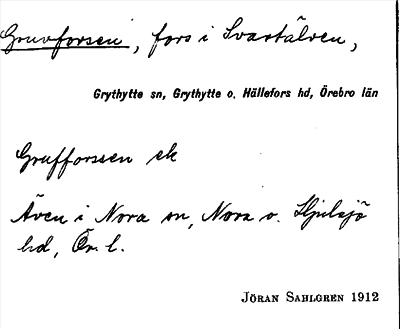 Gruvforsen, fors i Svartälven,
Grythytte sn, Grythytte o. Hällefors hd, Örebro län
Grufforssen ek
Även i Nora sn, Nora o. Hjulsjö
hd, Ör. l.
Jöran Sahlgren 1912